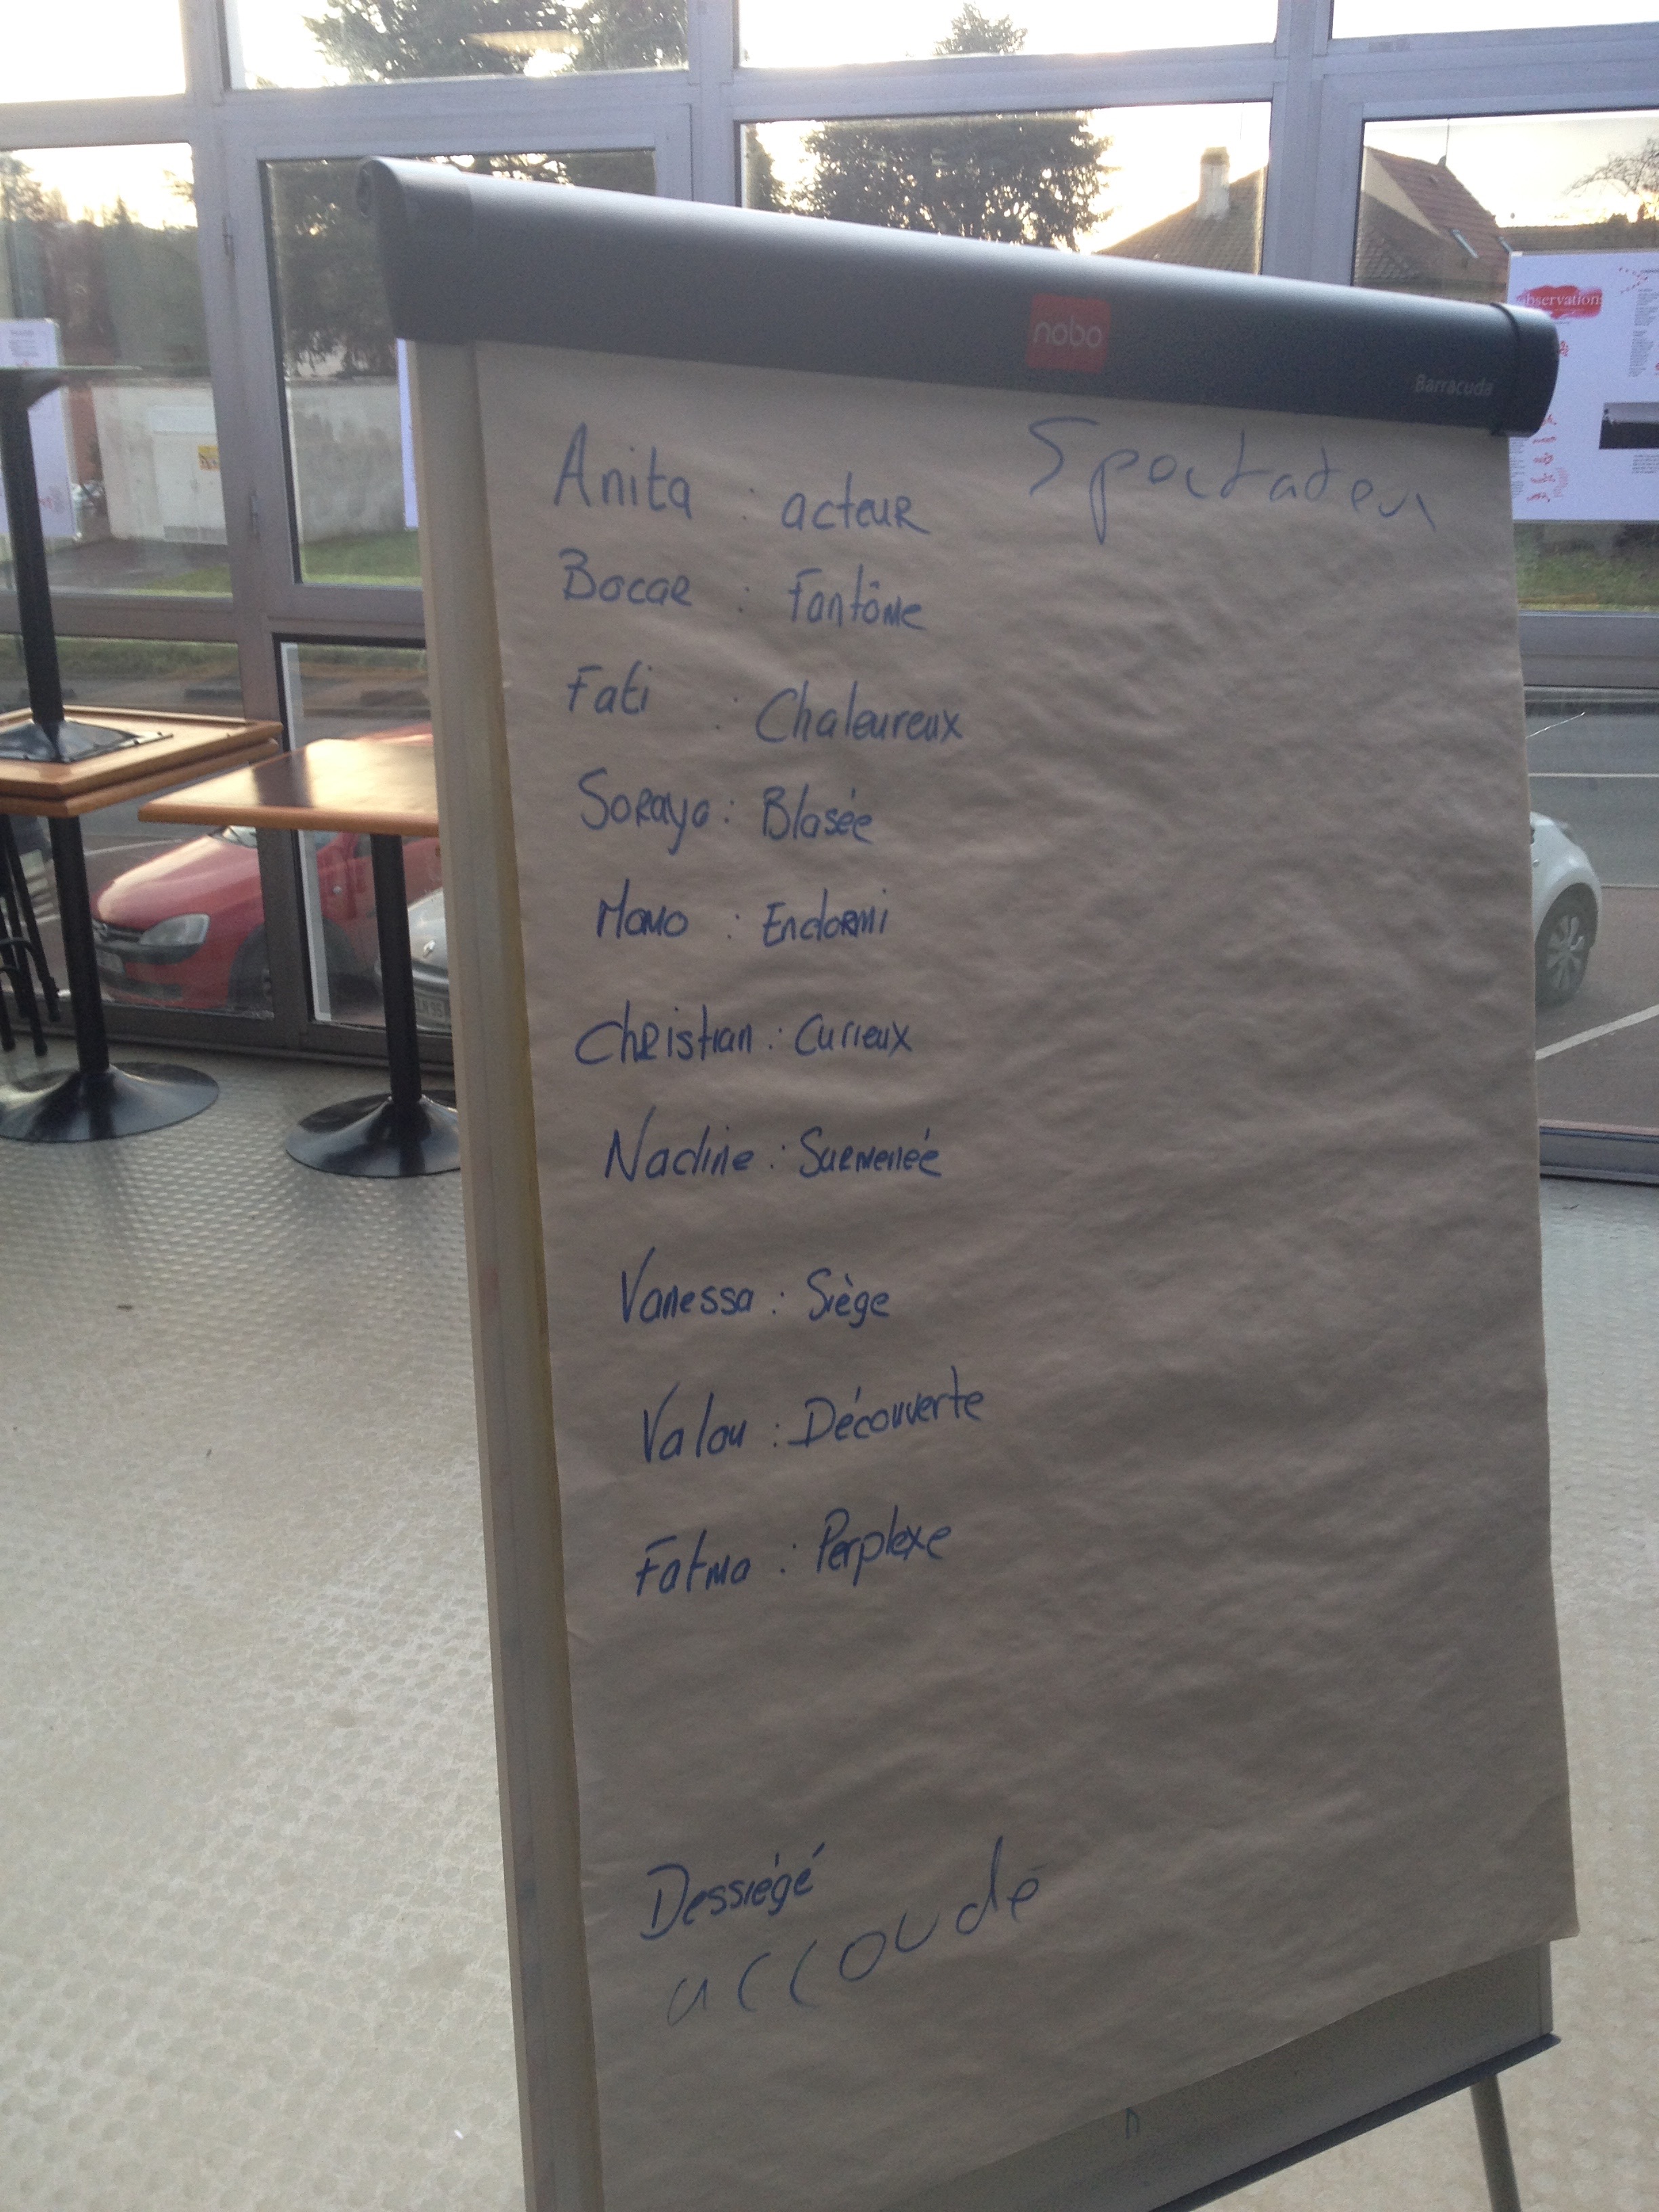 nobo
Barracuda
observations
Anita : acteur
Spectateur
Bocar : Fantôme
Fati : Chaleureux
Soraya : Blasée
Momo : Endormi
Christian : Curieux
Nadine : Surmenée
Vanessa : Siège
Valou : Découverte
Fatma : Perplexe
Dessiégé
accoudé